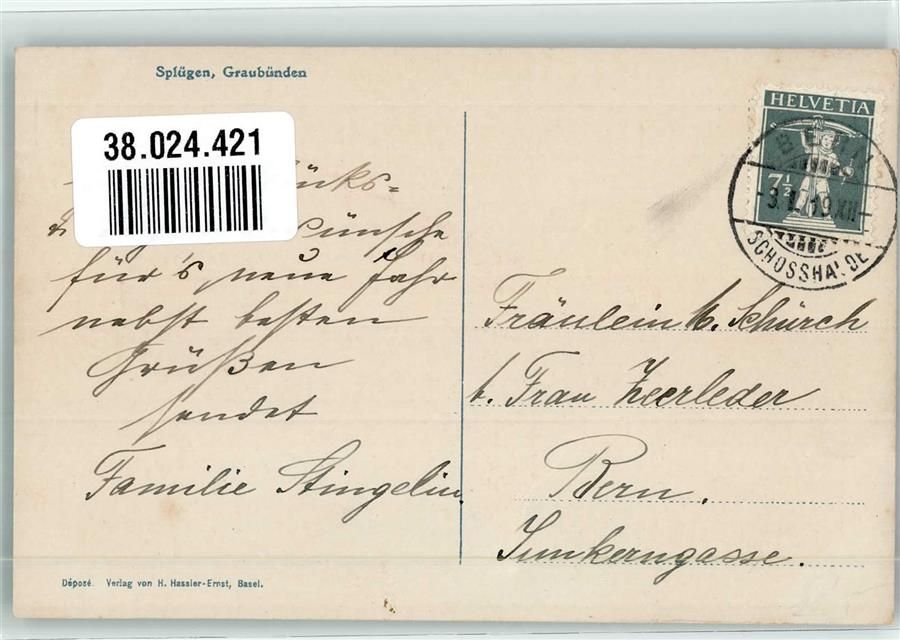 Splügen, Graubünden
38.024.421
ücks-
ünsche
für's neue Jahr
nebst besten
Grüßen
sendet
Familie Stingelin
HELVETIA
7½
BERN
SCHOSSHALDE
Fräulein M. Schürch
b. Frau Zeerleder
Bern.
Junkerngasse.
Déposé. Verlag von H. Hassler-Ernst, Basel.